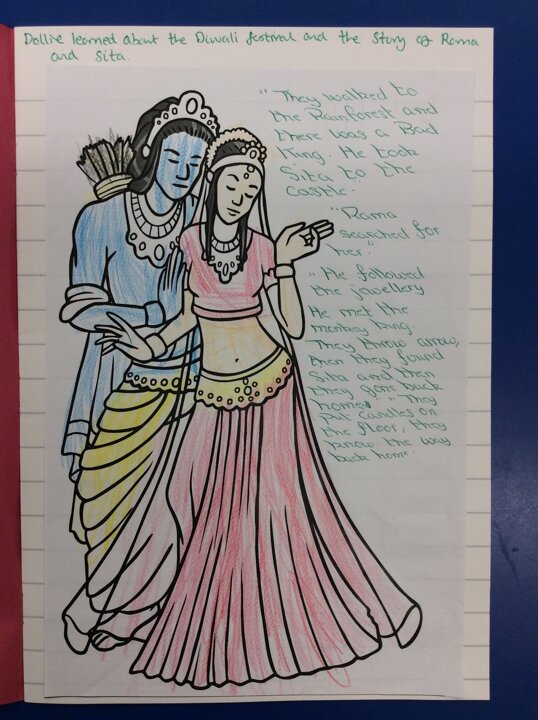 Dollie learned about the Diwali festival and the story of Rama
and Sita.
"They walked to
the Rainforest and
there was a Bad
King. He took
Sita to the
castle.
"Rama
searched for
her."
"He followed
the jewellery
He met the
monkey king
They throw arrow,
then they found
Sita and then
they gone back
homed." "They
put candles on
the floor, they
know the way
back home.